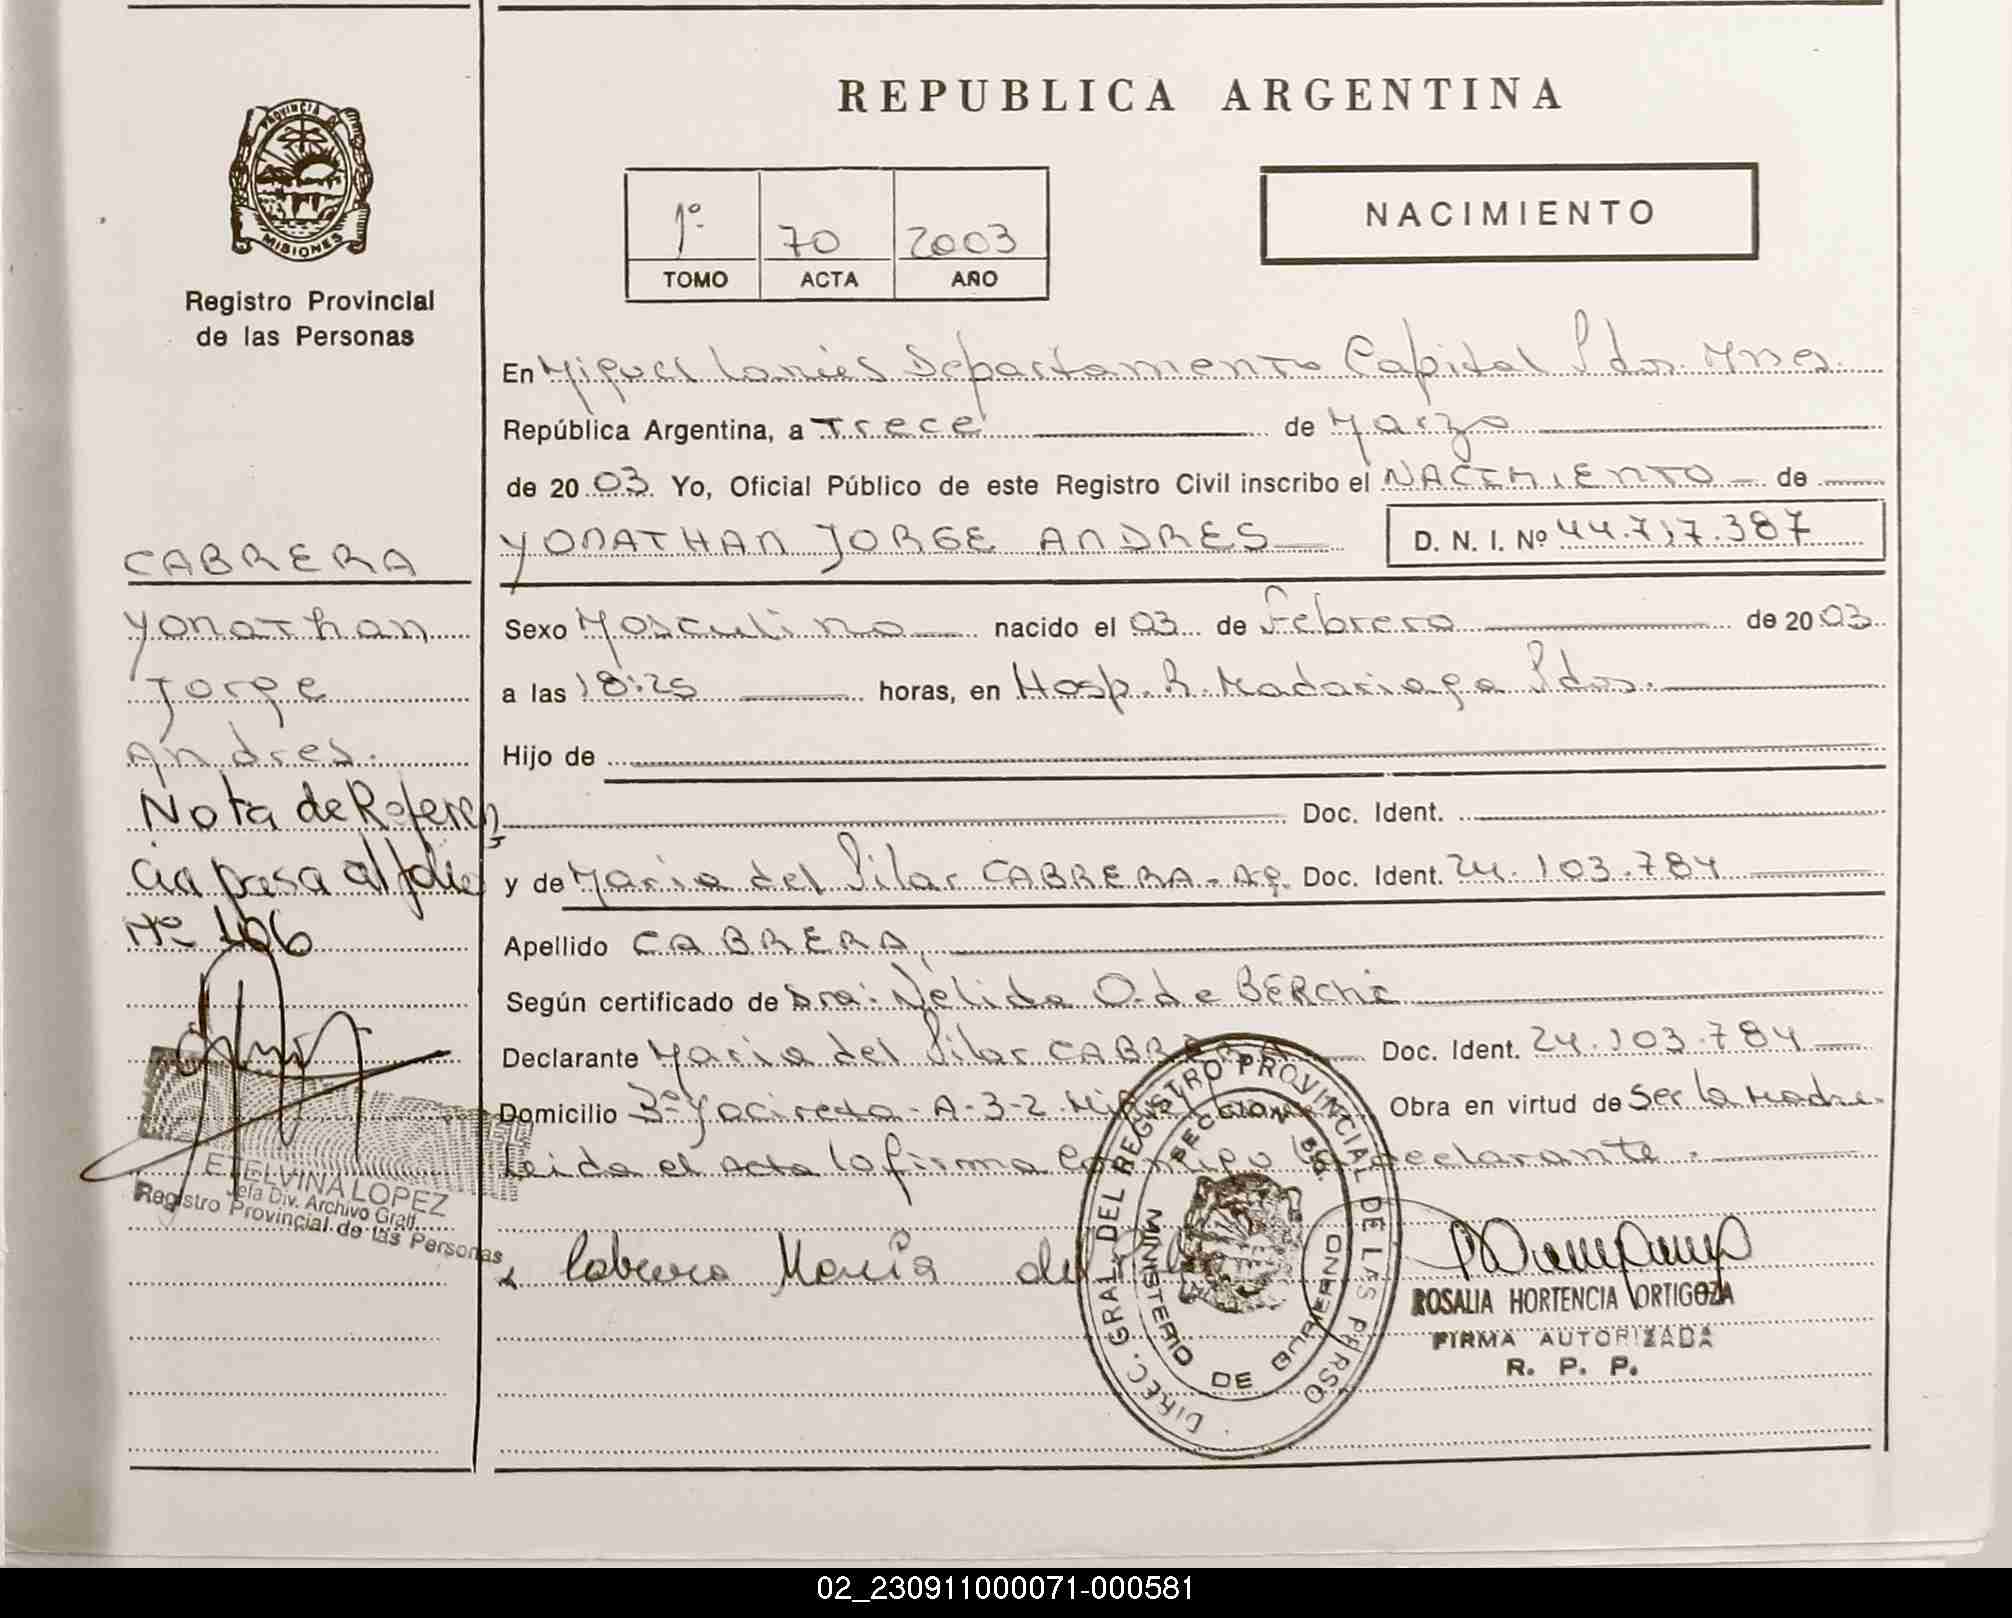 PROVINCIA DE
MISIONES
Registro Provincial
de las Personas
CABRERA
Yonathan
Jorge
Andres.
Nota de Referen
cia pasa al folio
Nº 106
ETELVINA LOPEZ
Jefa Div. Archivo Gral.
Registro Provincial de las Personas
REPUBLICA ARGENTINA
1º 70 2003
TOMO ACTA AÑO
NACIMIENTO
En Miguel Lanús Departamento Capital Pdas. Mnes.
República Argentina, a Trece de Marzo
de 2003. Yo, Oficial Público de este Registro Civil inscribo el NACIMIENTO de
YONATHAN JORGE ANDRES D. N. I. Nº 44.717.387
Sexo Masculino nacido el 03 de Febrero de 2003
a las 18:25 horas, en Hosp. R. Madariaga Pdas.
Hijo de
Doc. Ident.
y de Maria del Pilar CABRERA - Ag. Doc. Ident. 24.103.784
Apellido CABRERA
Según certificado de Dra: Nélida O. de BERCHI
Declarante Maria del Pilar CABRERA Doc. Ident. 24.103.784
Domicilio Bº Yacireta - A-3-2 Obra en virtud de Ser la Madre.
Leida el Acta la firma Conmigo la declarante.
Cabrera Maria del
DIREC. GRAL. DEL REGISTRO PROVINCIAL DE LAS PERSO
MINISTERIO DE GOBIERNO
ROSALIA HORTENCIA ORTIGOZA
FIRMA AUTORIZADA
R. P. P.
02_230911000071-000581